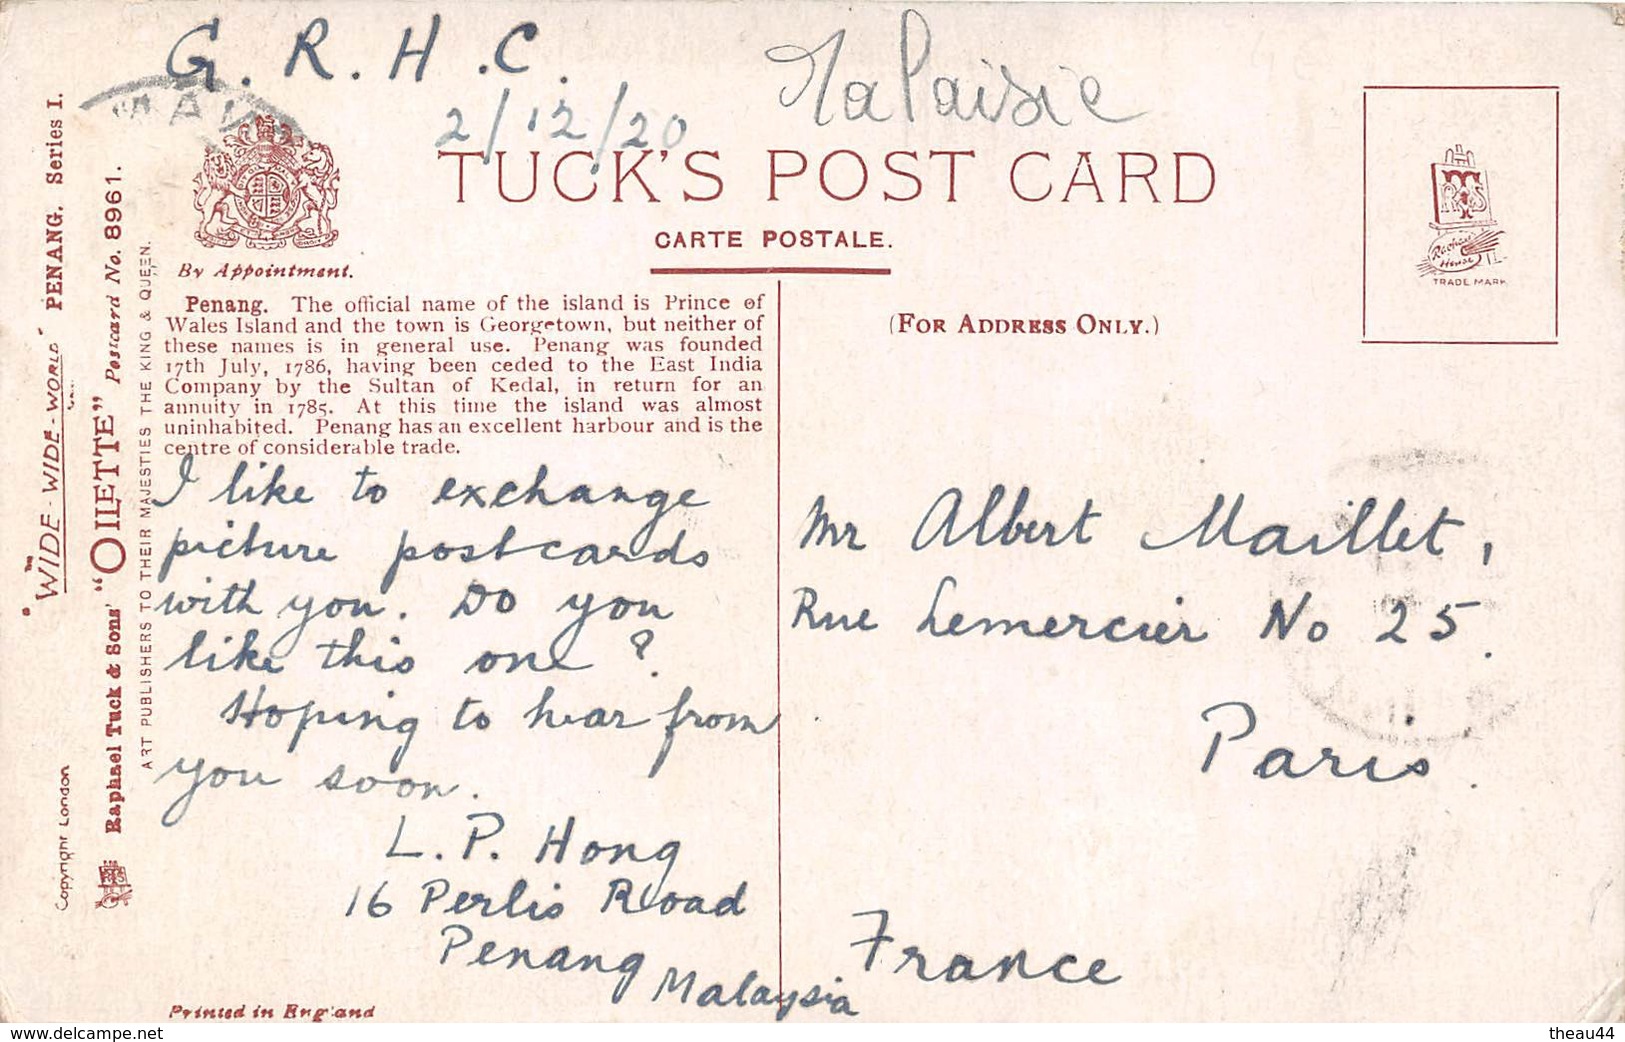 G. R. H. C.
Malaisie
2/12/20
TUCK'S POST CARD
CARTE POSTALE.
By Appointment.
(FOR ADDRESS ONLY.)
TRADE MARK
Penang. The official name of the island is Prince of
Wales Island and the town is Georgetown, but neither of
these names is in general use. Penang was founded
17th July, 1786, having been ceded to the East India
Company by the Sultan of Kedal, in return for an
annuity in 1785. At this time the island was almost
uninhabited. Penang has an excellent harbour and is the
centre of considerable trade.
I like to exchange
picture postcards
with you. Do you
like this one?
Hoping to hear from
you soon.
L. P. Hong
16 Perlis Road
Penang
Malaysia
Mr Albert Maillet,
Rue Lemercier No 25.
Paris.
France
"WIDE-WIDE-WORLD" PENANG. Series I.
Raphael Tuck & Sons' "OILETTE" Postcard No. 8961.
ART PUBLISHERS TO THEIR MAJESTIES THE KING & QUEEN.
Copyright London
Printed in England
www.delcampe.net
theau44